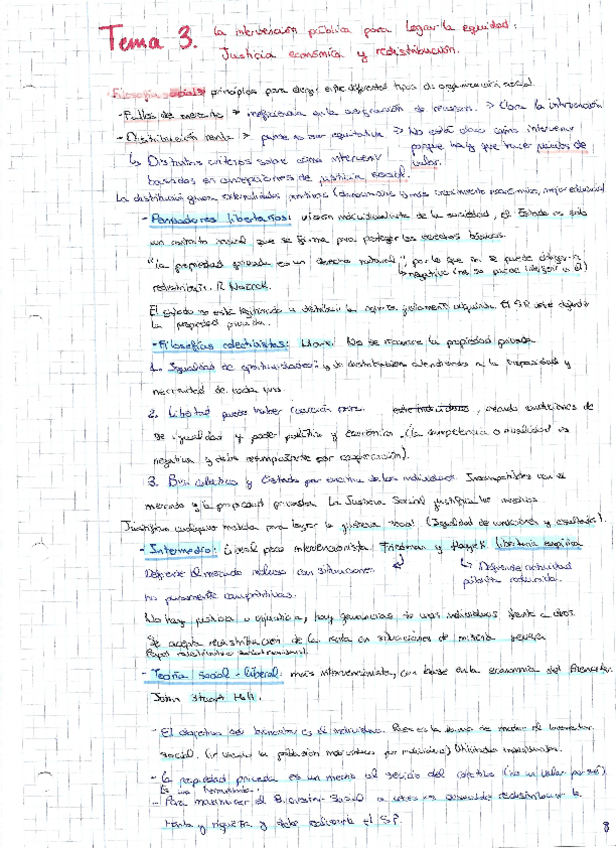 Tema 3. La intervención pública para lograr la equidad:
Justicia económica y redistribución.
Filosofía social: principios para elegir entre diferentes tipos de organización social
- Fallos de mercado → ineficiencia en la asignación de recursos. → Clara la intervención
- Distribución renta → puede no ser equitativa → No está claro cómo intervenir
porque hay que hacer juicios de
valor.
↳ Distintos criterios sobre cómo intervenir
basados en concepciones de justicia social.
La distribución genera externalidades positivas
- Pensadores libertarios: visión individualista de la sociedad, el Estado es solo
un contrato social que se firma para proteger los derechos básicos.
"La propiedad privada es un derecho natural", por lo que no se puede obligar a
redistribuir. R. Nozick.
El estado no está legitimado a distribuir la riqueza justamente adquirida. El SP debe defender
la propiedad privada.
- Filosofías colectivistas: Marx. No se reconoce la propiedad privada
1. Igualdad de oportunidades: y de distribución atendiendo a la capacidad y
necesidad de cada uno.
2. Libertad puede haber coacción entre creando condiciones de
igualdad y poder político y económico. (La competencia o rivalidad es
negativa y debe reemplazarse por cooperación).
3. Bien colectivo y Estado por encima de los individuos. Incompatibles con el
mercado y la propiedad privada. La Justicia Social justifica los medios
Justifican cualquier medida para lograr la justicia social (Igualdad de condiciones y resultados).
- Intermedio: Liberal poco intervencionista. Friedman y Hayek. Libertario empírico
Defiende el mercado incluso con situaciones
no puramente competitivas.
↳ Defiende actividad
pública reducida.
No hay justicia o injusticia, hay ganancias de unos individuos frente a otros.
Se acepta redistribución de la renta en situaciones de miseria severa
- Teoría social-liberal: más intervencionista, con base en la economía del Bienestar.
John Stuart Mill.
- El objetivo del bienestar es el individuo.
social.
- La propiedad privada es un medio al servicio del objetivo (no un valor por sí)
Es una herramienta.
- Para maximizar el Bienestar Social redistribuir la
renta y riqueza y debe realizarlo el SP.
8